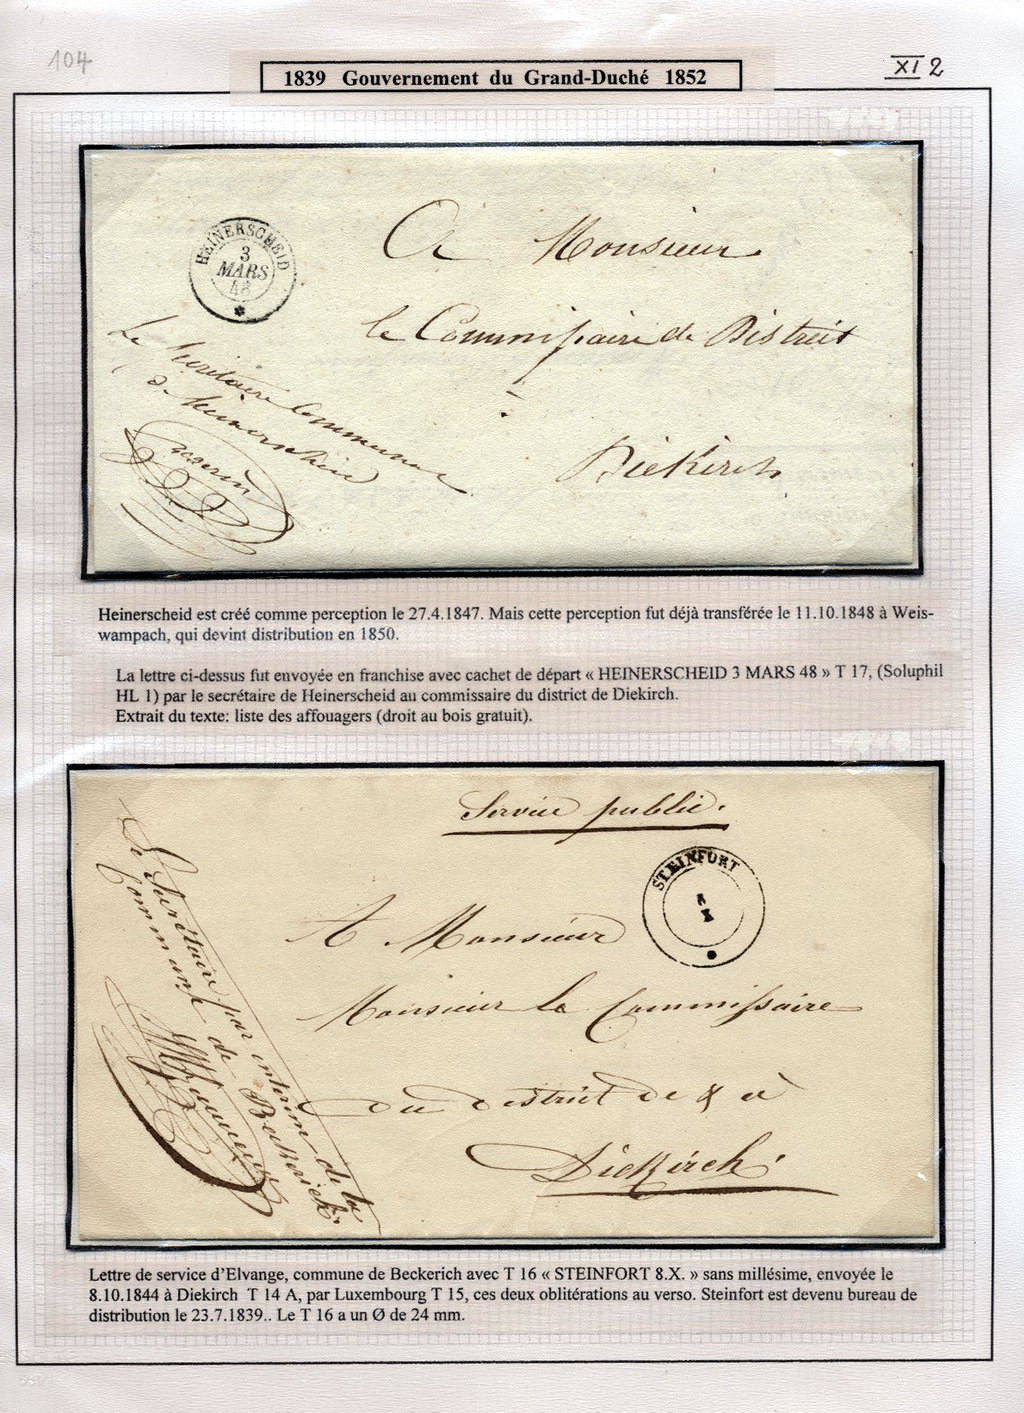 104
1839 Gouvernement du Grand-Duché 1852
XI 2
HEINERSCHEID
3
MARS
48
A Monsieur
le Commissaire de District
Diekirch
Le Secrétaire Communal
de Heinerscheid
Heinerscheid est créé comme perception le 27.4.1847. Mais cette perception fut déjà transférée le 11.10.1848 à Weis-
wampach, qui devint distribution en 1850.
La lettre ci-dessus fut envoyée en franchise avec cachet de départ « HEINERSCHEID 3 MARS 48 » T 17, (Soluphil
HL 1) par le secrétaire de Heinerscheid au commissaire du district de Diekirch.
Extrait du texte: liste des affouagers (droit au bois gratuit).
Service public.
STEINFORT
8
X
A Monsieur
Monsieur le Commissaire
du district de & à
Diekirch.
Le Secrétaire par interim de la
Commune de Beckerich.
Lettre de service d’Elvange, commune de Beckerich avec T 16 « STEINFORT 8.X. » sans millésime, envoyée le
8.10.1844 à Diekirch T 14 A, par Luxembourg T 15, ces deux oblitérations au verso. Steinfort est devenu bureau de
distribution le 23.7.1839.. Le T 16 a un Ø de 24 mm.